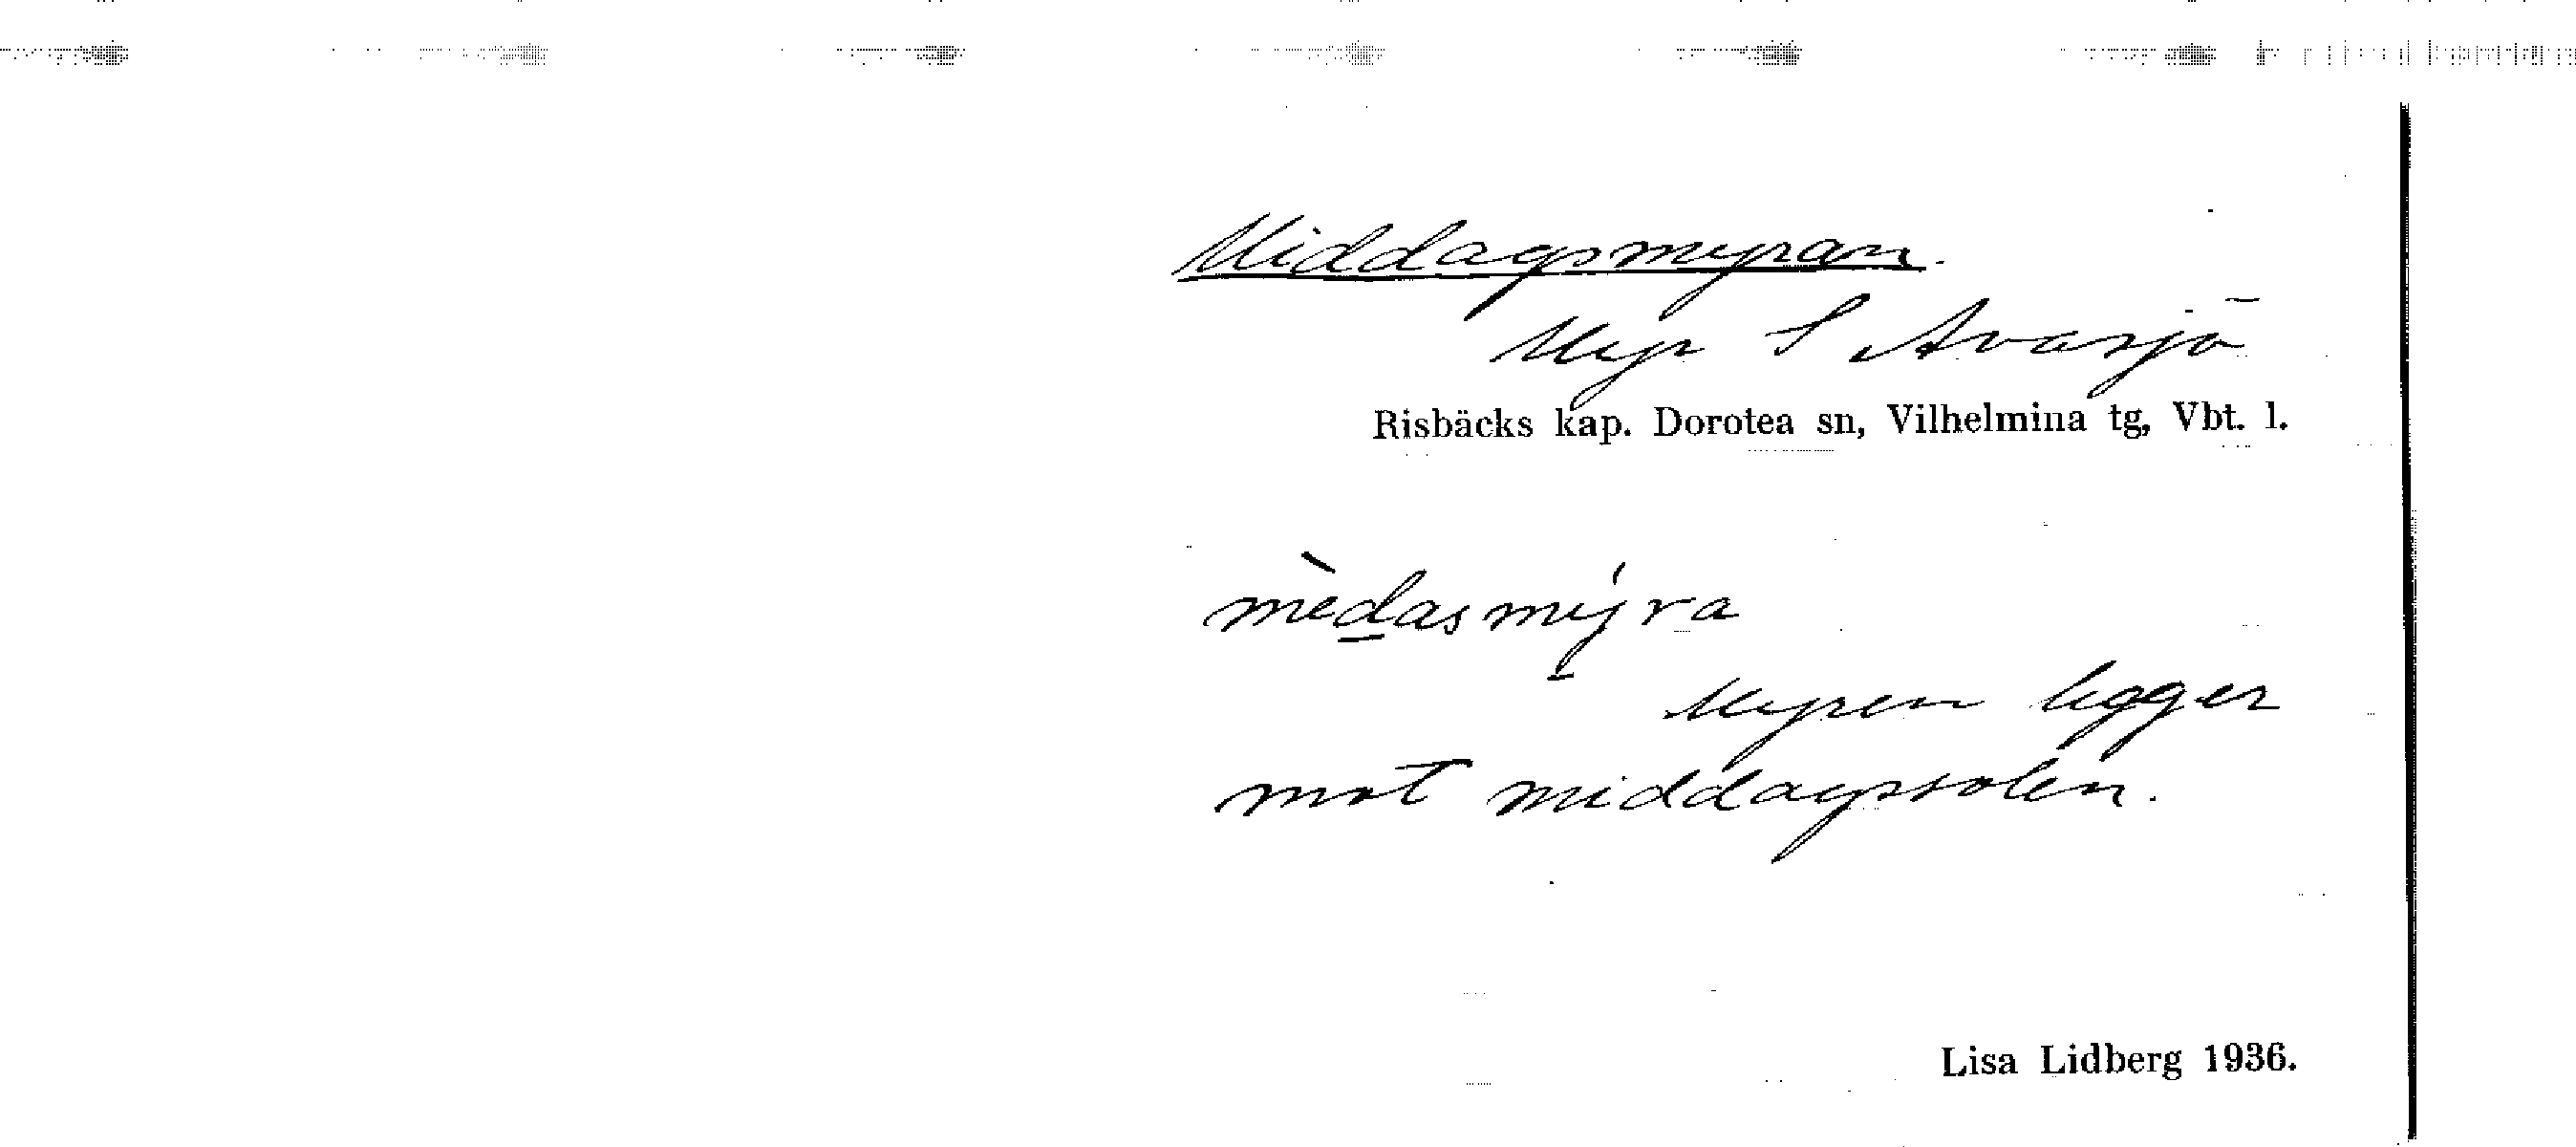 Middagsmyran.
Myr S Avasjö
Risbäcks kap. Dorotea sn, Vilhelmina tg, Vbt. l.
mèdasmýra
Myren ligger
mot middagssolen.
Lisa Lidberg 1936.